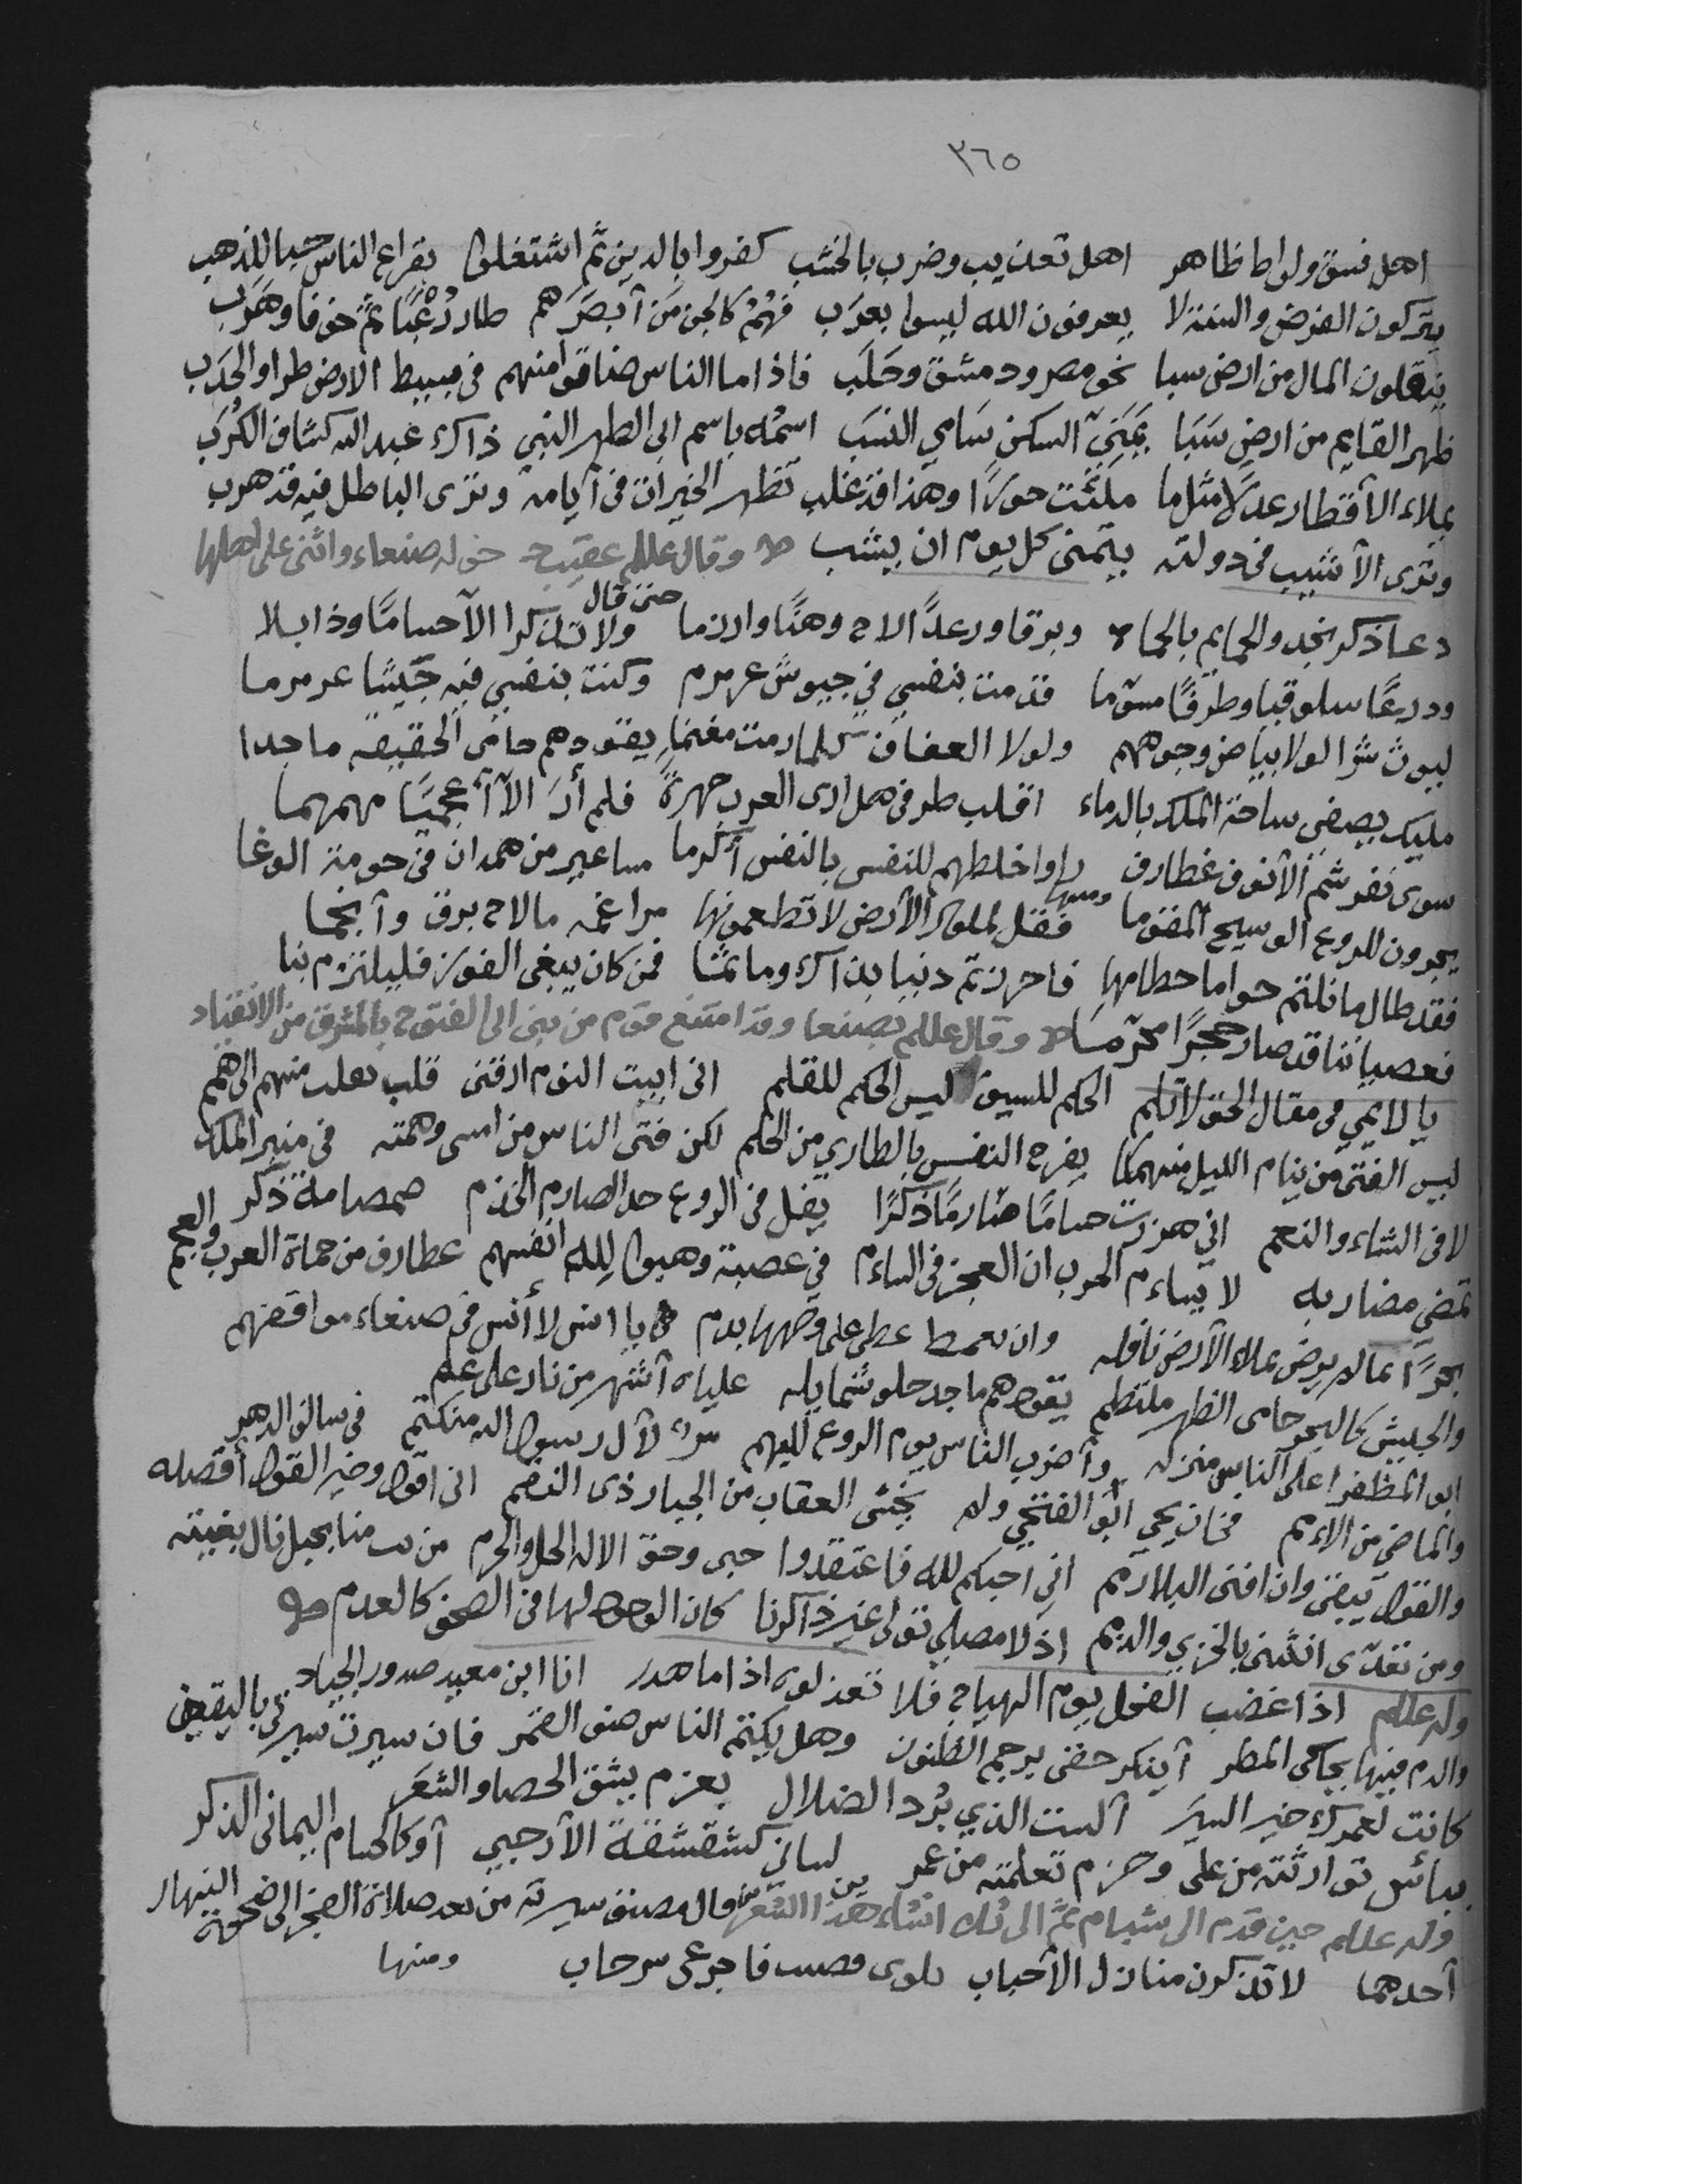 ٣٦٥
اهل فسق ولواط ظاهر اهل تعذيب وضرب بالخشب كفروا بالدين ثم اشتغلوا بقراع الناس حبا للذهب
يتركون الفرض والسنة لا يعرفون الله ليسوا بعرَب فهُمُ كالجن مَن آبصَرَهم طار رُعْبًا ثمَّ خوفا وهَرَب
ينقلون المال من ارض سبا نحو مصر ودمشق وحَلَب فاذا ما الناس ضاقوا منهم في بسيط الارض طرا والحدَب
ظهر القايم من ارض سَبَا يَمَنيّ السكن سَامي النسَب اسمُه باسم ابى الطهر النبى ذاك عبد الله كشاف الكُرَب
يملاء الآقطار عدلًا مثل ما ملئت جورًا وهذا قد غلب تظهر الخيرات في آيامه وترى الباطل فيه قد هرب
وترى الآشيب في دولته يتمنى كل يوم ان يشب وقال علكم عقيب دخوله صنعاء واثنى على اهلها
دعا ذكر نجد والحمايم بالحما وبرقا ورعدًا لاح وهنًا وارزما حتى قال ولا تذكرا الآحسامًا وذابلا
ودرعًا سلوقيا وطرفًا مسوما قدمت بنفسي في جيوش عرمرم وكنت بنفسي فيه جَيشًا عرمرما
ليوث شرا لولا بياض وجوههم ولولا العفاف كلما رمت مغنما يقودهم حامى الحقيقه ماجدا
مليك يصفى ساحة الملك بالدماء اقلب طرفى هل ارى العرب جهرةً فلم أرَ الآ آعجميًا مهمهما
سوى نفر شم الآنوف غطارف واخلطهم للنفس بالنفس آكرما مساعير من همدان في حومة الوغا
يجرون للروع الوسيح المقوما ومنها فقل لملوك الآرض لا تطعمونها مراغمه مالاح برق وآنجما
فقد طال ما نلتم حواما حطامها فاحرزتم دنيا بذاك وماثما فمن كان يبغى الفوز فليلتزم بنا
فعصياننا قد صار حجرًا محرّمًا وقال علكم بصنعا وقد امتنع قوم من بنى ابى الفتوح بالمشرق من الانقياد
يا لايمي في مقال الحق لا تلم الحكم للسيف ليس الحكم للقلم انى ابيت النوم ارقنى قلب منهم الى همم
ليس الفتى من ينام الليل منهمكا يفرح النفس بالطاري من الحلم لكن فتى الناس من امسى وهمته في منبر الملك
لا في الشاء والنعم اني هززت حسامًا صارمًا ذكرًا يفل في الروع حد الصارم الخذم صمصامة ذكر
تمضي مضاربه لا يساءم الحرب ان العجز في الساءم في عصبة وهبوا لِلّه انفسهم غطارف من حماة العرب والعجم
بحرًا بماله يرض بملاء الآرض نافله وان على وجهها بدم يا انس لا آنس في صنعاء مواقفهم
والجيش كالبحر حامى الظهر ملتطم يقودهم ماجد حلو شمايله علياه آشهر من نار على علم
ابو المظفر اعلى الناس منزله وآضرب الناس يوم الروع للبهم لآل رسول الله منكتم في سالف الدهر
والماضي من الامم فخان يحي ابو الفتحي ولم يخشى العقاب من الجبار ذى النقم انى اقول وخير القول أقصده
والقول يبقى وان افنى البلا رمم اني احبكم لله فاعتقدوا حبى وحق الاله الحل والحرم من منا بحبل نال بغيته
ومن تعدّى انثنى بالخزي والذمم اذ لا مصلي تولى غير ذاكرنا كان الوجود لها في الصحف كالعدم
وله علكم اذا غضب الفحل يوم الهياج فلا تعذلوه اذا ما هدر انا ابن معيد صدور الجياد
والدم فيها يحاكى المطر آينكر حقى برجم الظنون وهل يكتم الناس ضوء القمر فان سيرت سيرتي باليقين
كانت لعمرك خير السيَر آلست الذي يرُد الضلال بعزم يشق الحصا والشعَر
ببأس توارثته من على وحزم تعلمته من عمر لسانى كشقشقة الآرحبي آو كالحسام اليمانى الذكر
وله علكم حين قدم الى شبام ثمَّ الى ثلا انشاء هذا الشعر قال مصنف سيرته من بعد صلاة الفجر الى ضحوة النهار
آحدهما لا تذكرن منازل الآحباب فاجرعى سرحاب ومنها